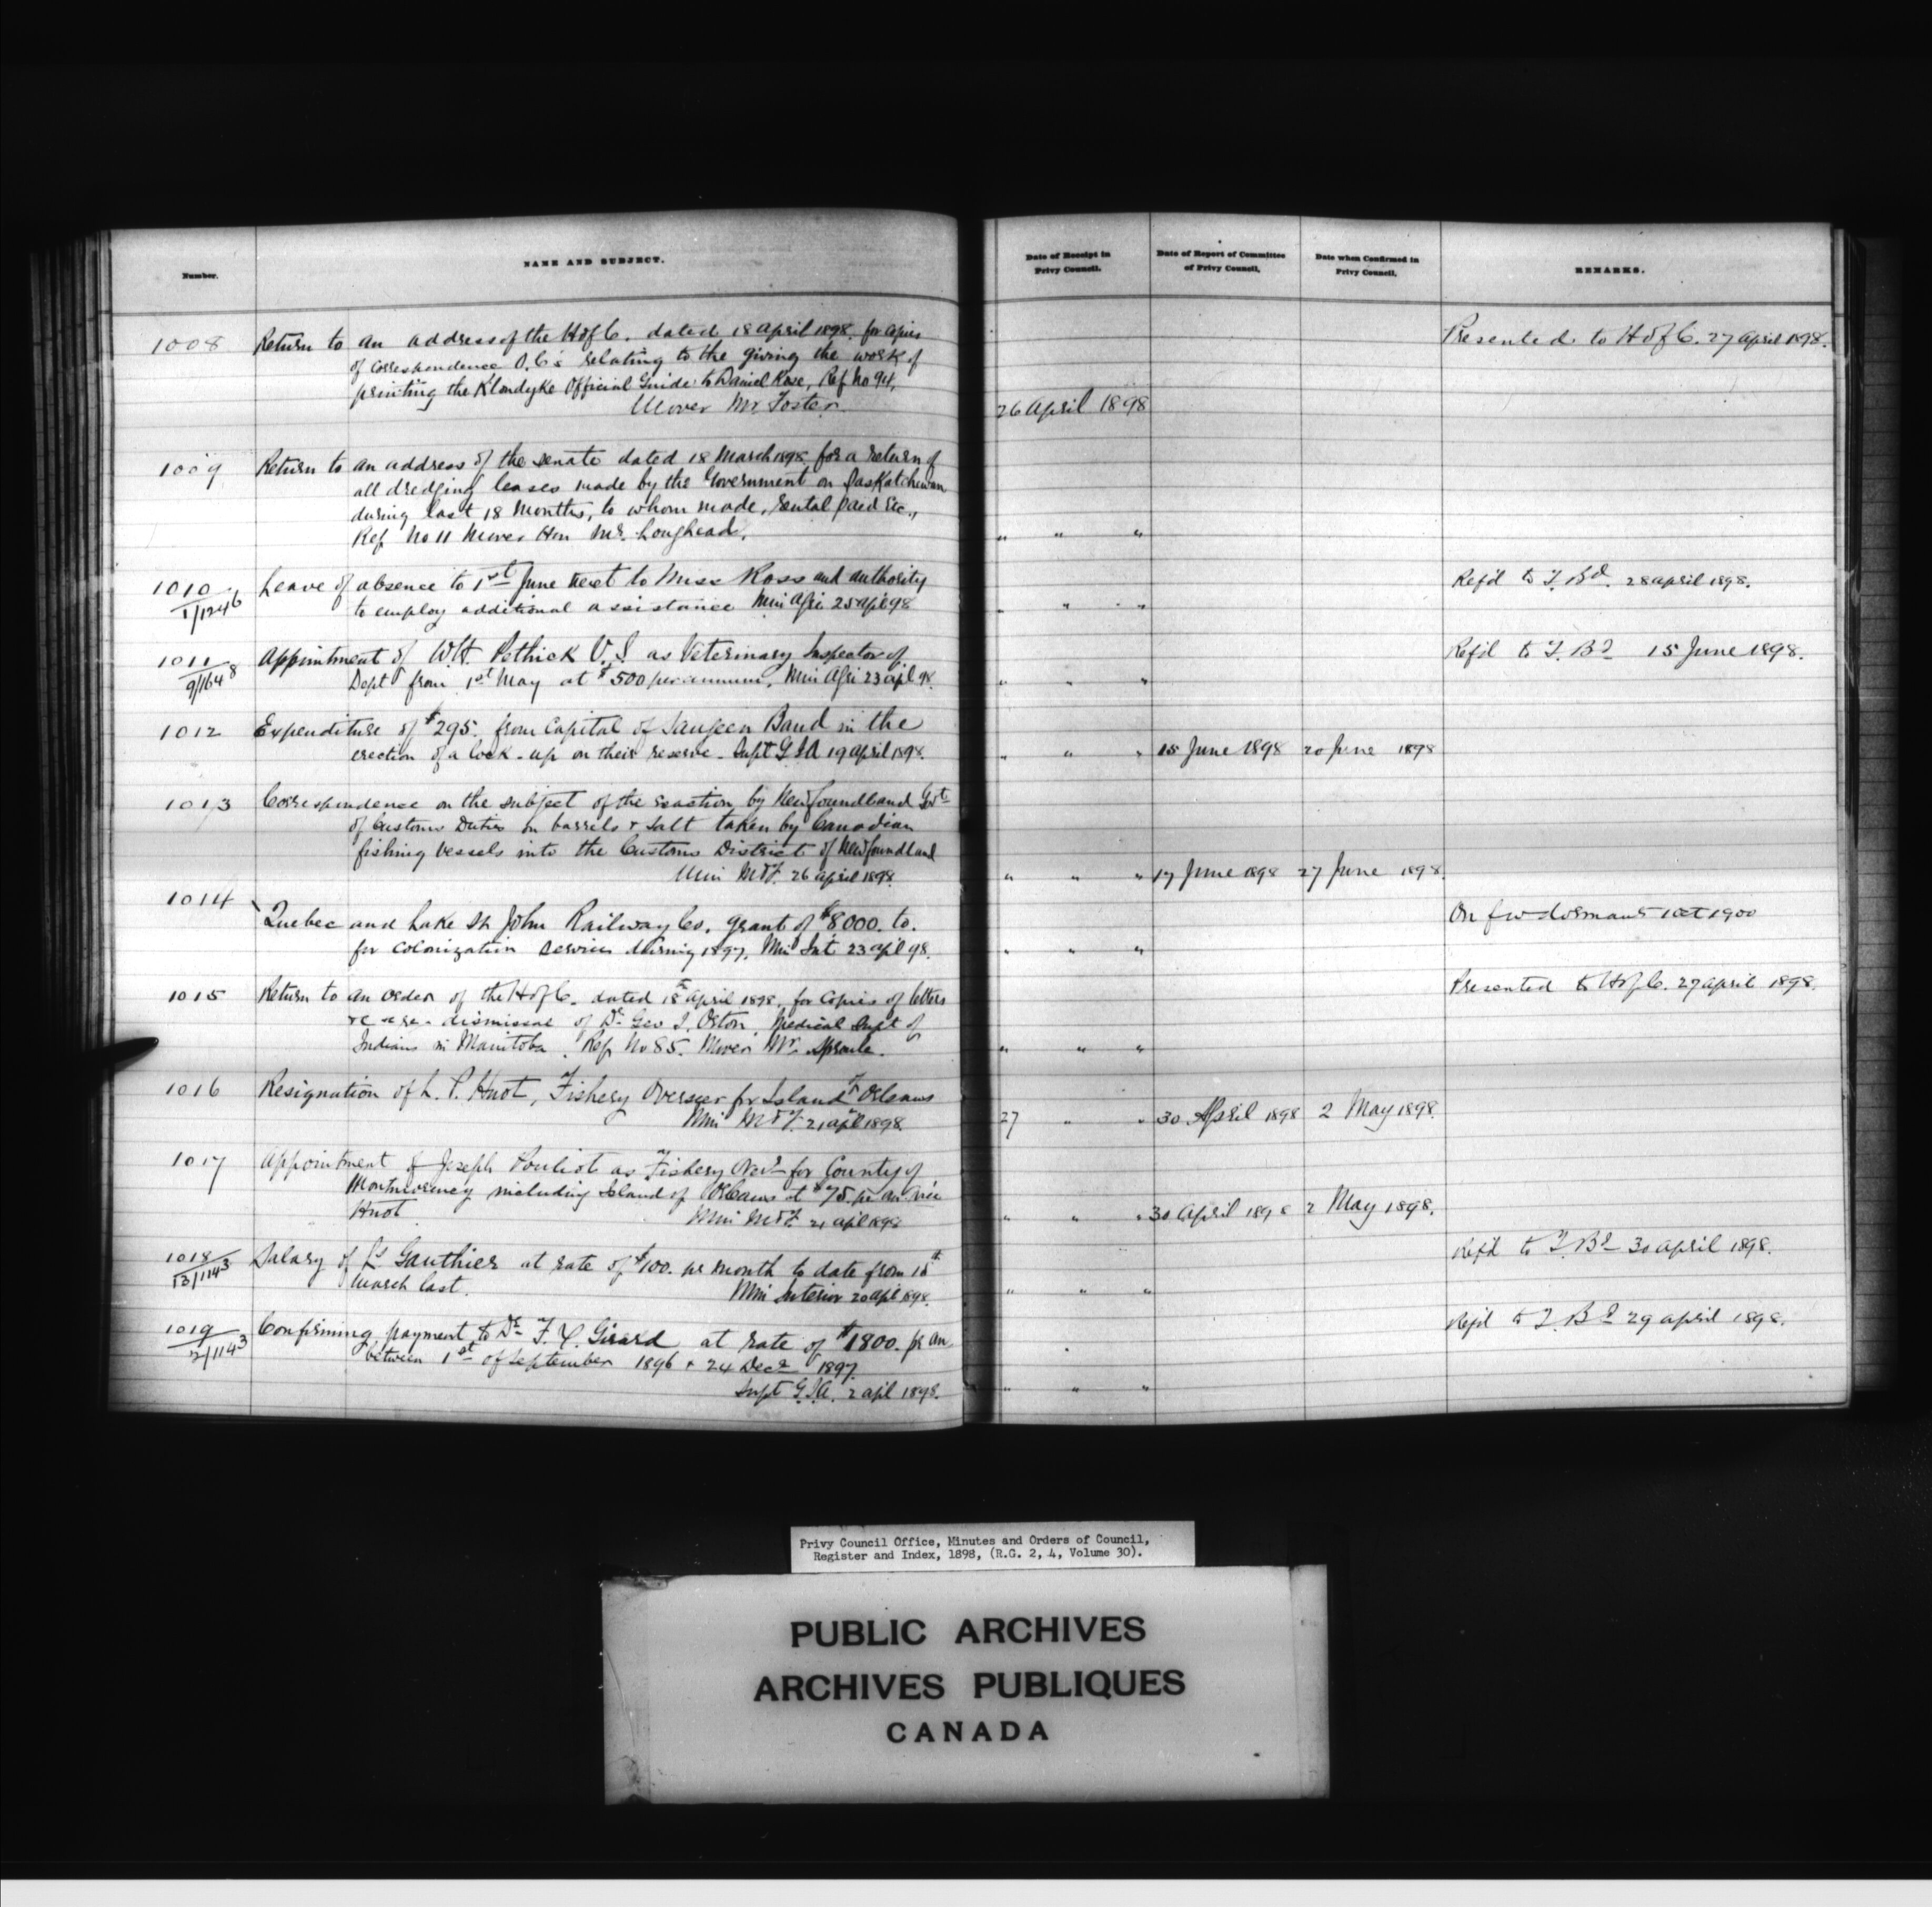 Number.
NAME AND SUBJECT.
Date of Receipt in
Privy Council.
Date of Report of Committee
of Privy Council,
Date when Confirmed in
Privy Council,
REMARKS.
1008 Return to an address of the H of C. dated 18 April 1898. for copies
of correspondence O.C's relating to the giving the work of
printing the Klondyke Official Guide to Daniel Rose, Ref No 94,
Mover Mr Foster
26 April 1898
Presented to H of C. 27 April 1898.
1009 Return to an address of the Senate dated 18 March 1898 for a return of
all dredging leases made by the Government on Saskatchewan
during last 18 Months, to whom made, rental paid Etc.,
Ref No 11 Mover Hon Mr. Lougheed.
" " "
1010 Leave of absence to 1st June next to Miss Ross and authority
1/1246 to employ additional assistance Min Agri 25 apl 98
" " "
Ref'd to T. Bd. 28 april 1898.
1011 Appointment of W.H. Pethick V.S. as Veterinary Inspector of
9/1648 Dept from 1st May at $500 per annum. Min Agri 23 apl 98.
" " "
Ref'd to T. Bd 15 June 1898.
1012 Expenditure of $295. from Capital of Saugeen Band in the
erection of a lock-up on their reserve. Supt G I A 19 april 1898.
" " " 15 June 1898 20 June 1898
1013 Correspondence on the subject of the exaction by Newfoundland Govt
of Customs Duties on barrels & salt taken by Canadian
fishing vessels into the Customs District of Newfoundland
Min M & F. 26 april 1898.
" " " 17 June 1898 27 June 1898.
1014
Quebec and Lake St John Railway Co. grant of $8000. to.
for colonization services during 1897. Min Int 23 apl 98.
" " "
On f w dormant 1 Oct 1900
1015 Return to an order of the H of C. dated 18 april 1898, for copies of letters
dismissal of Dr Geo T. Orton, Medical Supt of
Indians in Manitoba. Ref No 85. Mover Mr. Sproule.
" " "
Presented to H of C. 27 april 1898.
1016 Resignation of L. P. Huot, Fishery Overseer for Island of Orleans
Min M & F. 21 apl 1898.
27 " " 30 April 1898 2 May 1898.
1017 Appointment of Joseph Pouliot as Fishery Ovr for County of
Montmorency including Island of Orleans at $75. per an vice
Huot Min M & F 21 apl 1898
" " " 30 April 1898 2 May 1898.
1018 Salary of Ls Gauthier at rate of $100. per month to date from 15th
13/1143 March last. Min Interior 20 apl 1898.
" " "
Ref'd to T. Bd 30 april 1898.
1019 Confirming payment to Dr F. X. Girard at rate of $1800. pr an
2/1143 between 1st of September 1896 & 24 Decr 1897.
Supt G.I.A. 2 apl 1898.
" " "
Ref'd to T. Bd 29 april 1898.
Privy Council Office, Minutes and Orders of Council,
Register and Index, 1898, (R.G. 2, 4, Volume 30).
PUBLIC ARCHIVES
ARCHIVES PUBLIQUES
CANADA